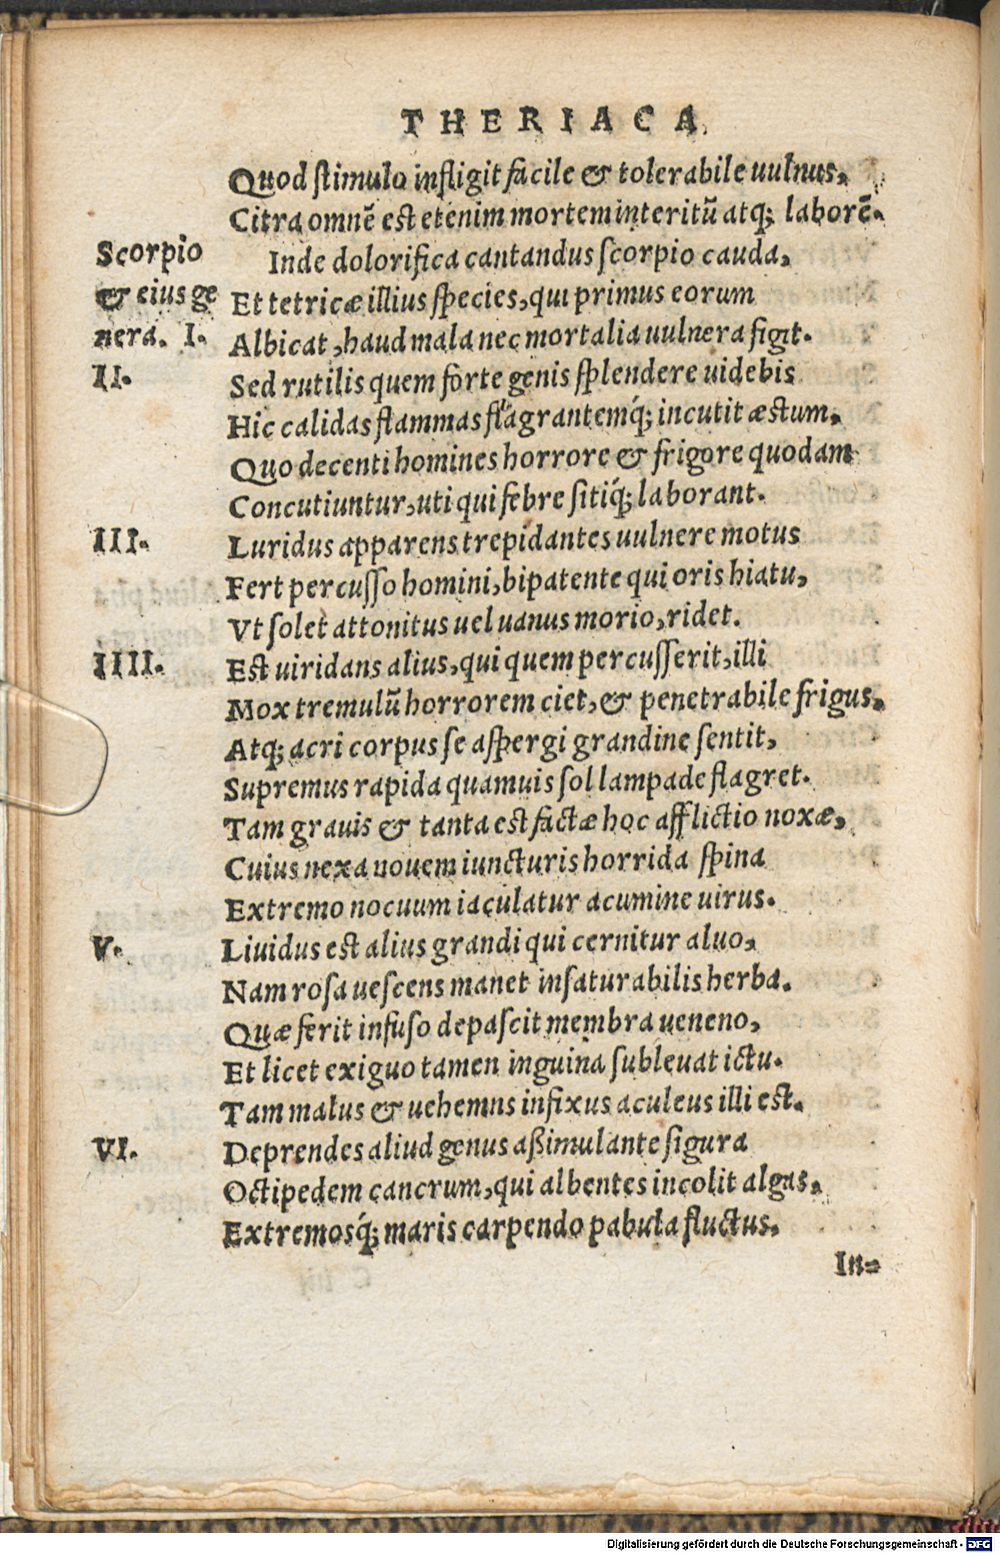 THERIACA,
Quod ſtimulo infligit facile & tolerabile uulnus,
Citra omnē est etenim mortem interitū atq; laborē.
Scorpio Inde dolorifica cantandus ſcorpio cauda,
& eius ge Et tetricæ illius ſpecies, qui primus eorum
nera. I. Albicat, haud mala nec mortalia uulnera figit.
II. Sed rutilis quem forte genis ſplendere uidebis
Hic calidas flammas flagrantemq́; incutit æstum,
Quo decenti homines horrore & frigore quodam
Concutiuntur, uti qui febre ſitiq́; laborant.
III. Luridus apparens trepidantes uulnere motus
Fert percuſſo homini, bipatente qui oris hiatu,
Vt ſolet attonitus uel uanus morio, ridet.
IIII. Est uiridans alius, qui quem percuſſerit, illi
Mox tremulū horrorem ciet, & penetrabile frigus,
Atq; acri corpus ſe aſpergi grandine ſentit,
Supremus rapida quamuis ſol lampade flagret.
Tam grauis & tanta est factæ hoc afflictio noxæ,
Cuius nexa nouem iuncturis horrida ſpina
Extremo nocuum iaculatur acumine uirus.
V. Liuidus est alius grandi qui cernitur aluo,
Nam roſa ueſcens manet inſaturabilis herba.
Quæ ferit infuſo depaſcit membra ueneno,
Et licet exiguo tamen inguina ſubleuat ictu.
Tam malus & uehemns infixus aculeus illi est.
VI. Deprendes aliud genus aßimulante figura
Octipedem cancrum, qui albentes incolit algas,
Extremosq́; maris carpendo pabula fluctus.
In-
Digitalisierung gefördert durch die Deutsche Forschungsgemeinschaft - DFG